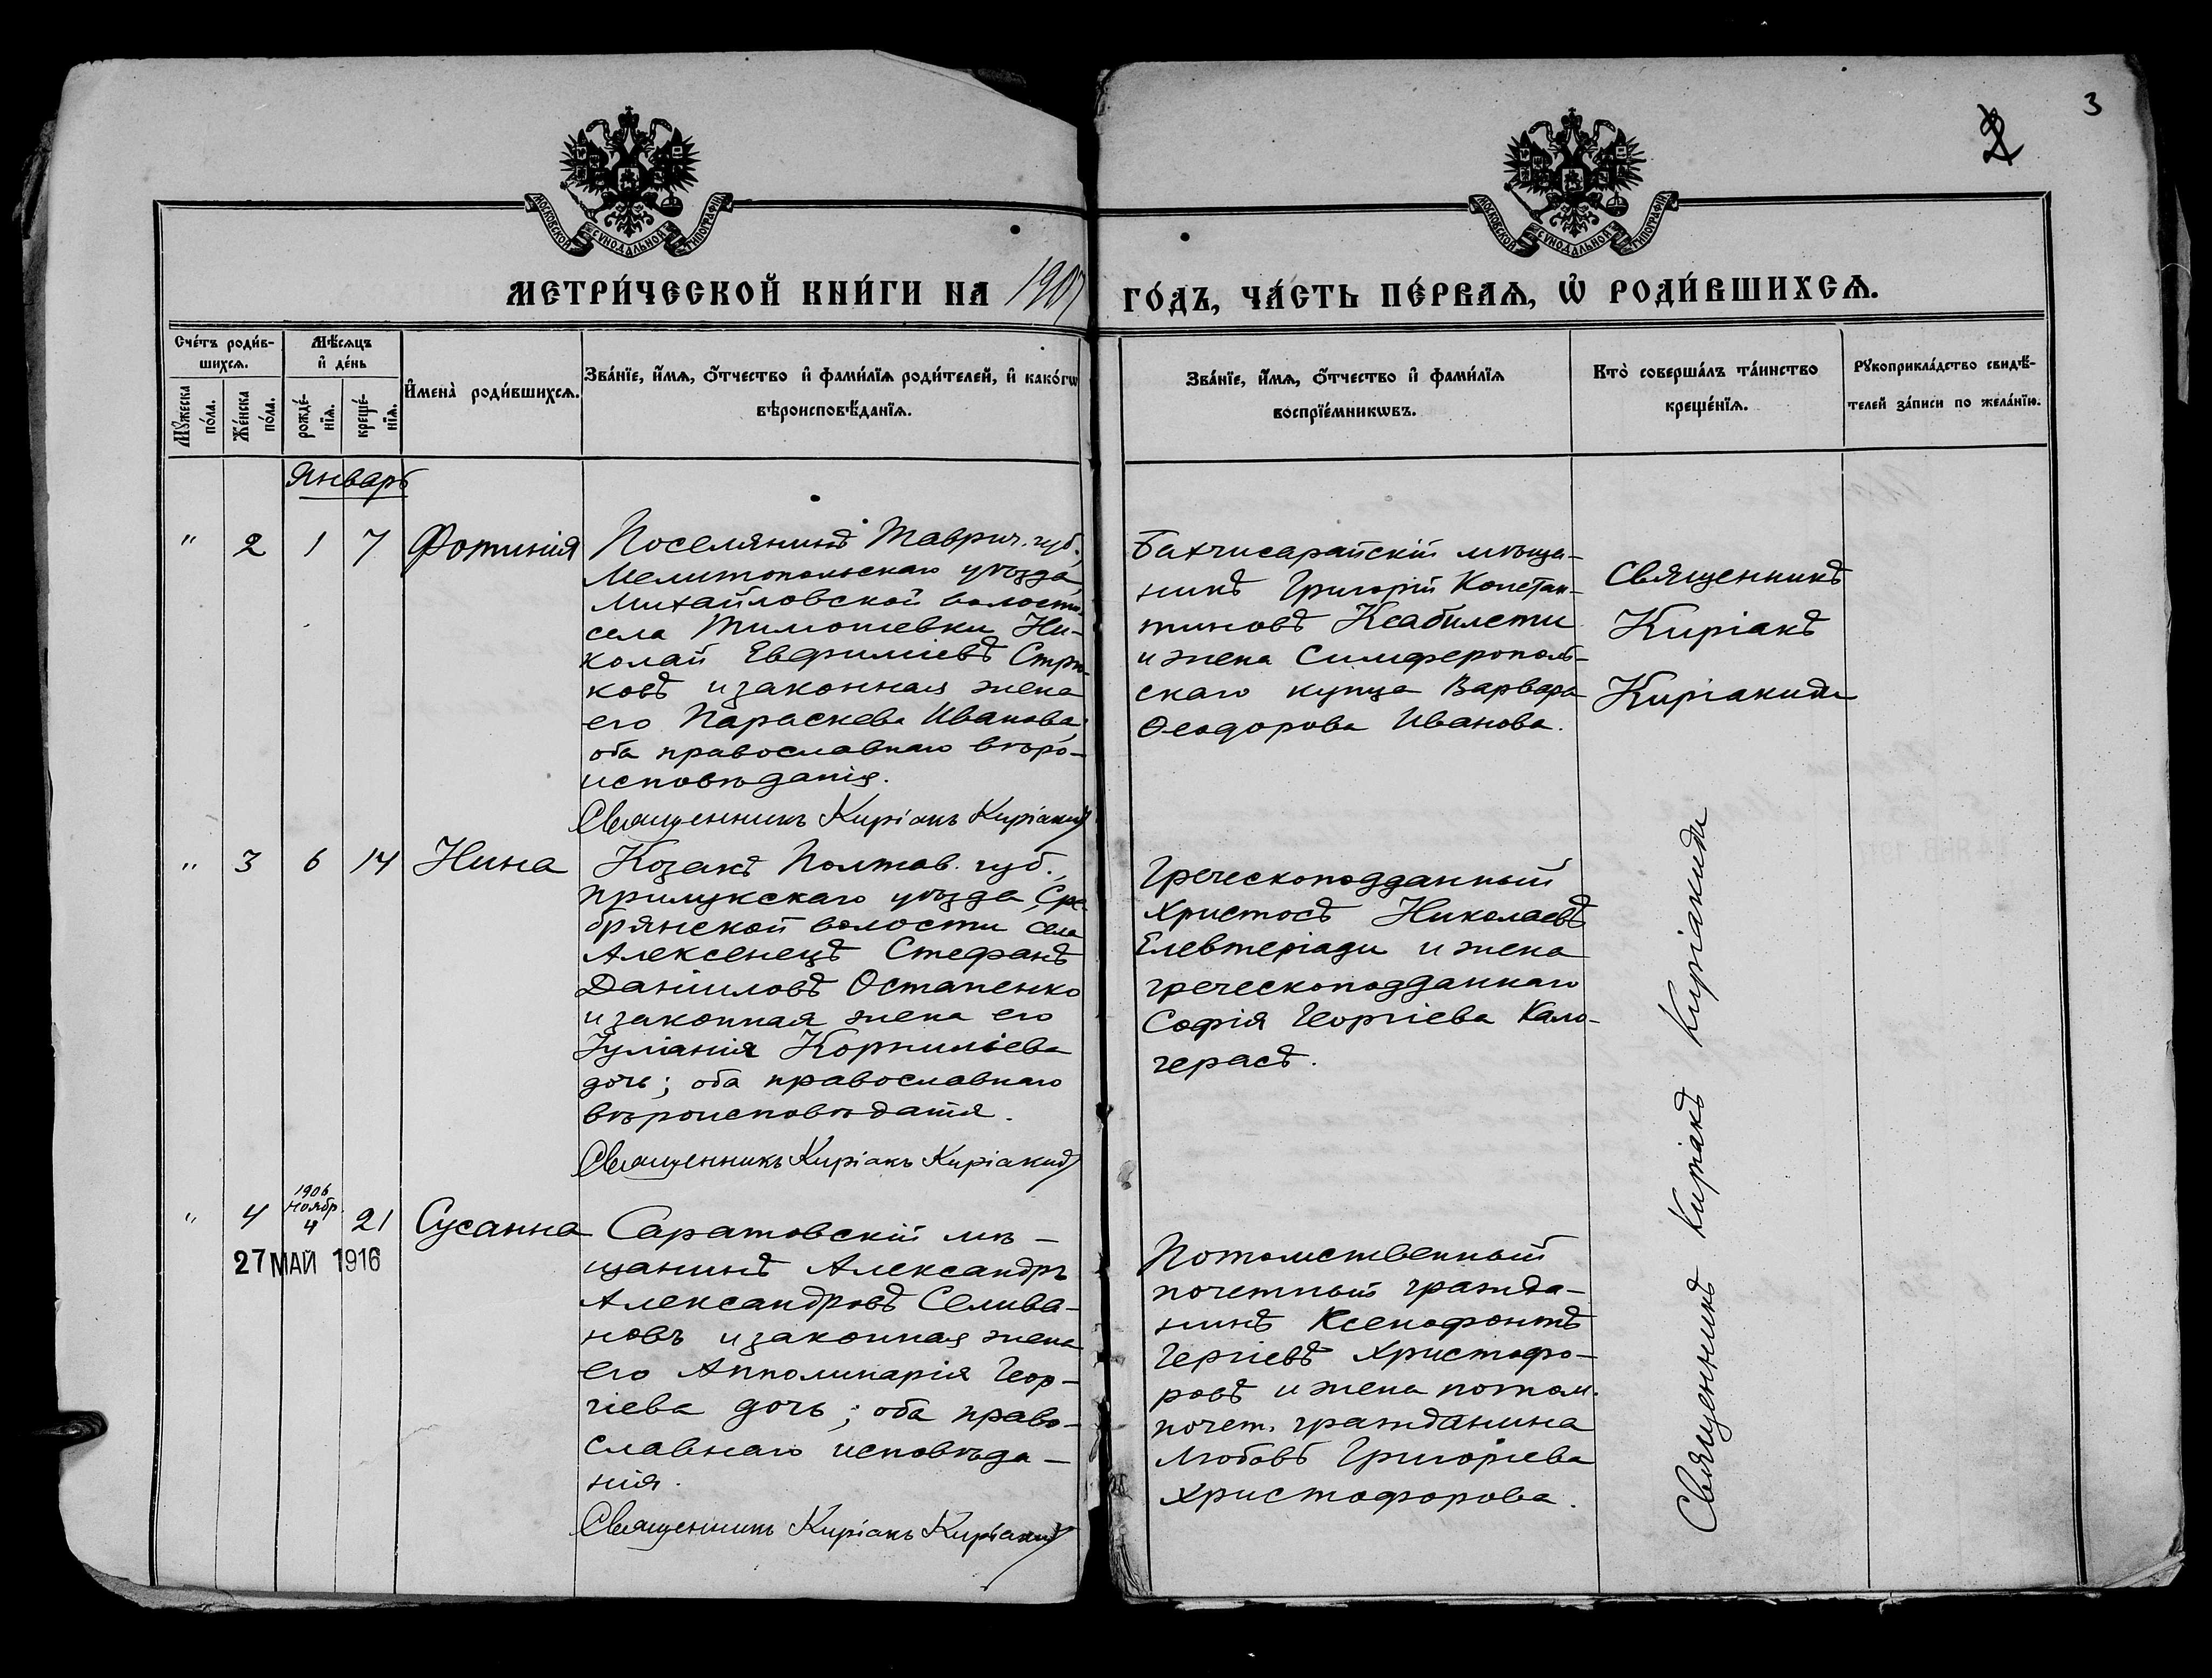 3
2
МОСКОВСКОЙ СѴНОДАЛЬНОЙ ТИПОГРАФІИ
МОСКОВСКОЙ СѴНОДАЛЬНОЙ ТИПОГРАФІИ
МЕТРИ́ЧЕСКОЙ КНИ́ГИ НА 1907
ГО́ДЪ, ЧА́СТЬ ПЕ́РВАѦ, Ѡ҆ РОДИ́ВШИХСѦ.
Сче́тъ роди́в-
шихсѧ.
Мꙋ́жеска
по́ла.
Же́нска
по́ла.
Мѣ́сѧцъ
и҆ де́нь
рожде́-
нїѧ.
креще́-
нїѧ.
И҆мена̀ роди́вшихсѧ.
Зва́нїе, и҆́мѧ, ѻ҆́тчество и҆ фами́лїѧ роди́телей, и҆ како́гѡ
вѣроисповѣ́данїѧ.
Зва́нїе, и҆́мѧ, ѻ҆́тчество и҆ фами́лїѧ
воспрїе́мникѡвъ.
Кто̀ соверша́лъ та́инство
креще́нїѧ.
Рꙋкоприкла́дство свидѣ́-
телей за́писи по жела́нїю.
Январь
" 2 1 7 Фотинія
Поселянинъ Таврич. губ.,
Мелитопольскаго уѣзда,
Михайловской волости,
села Тимошевки Ни-
колай Евфиміевъ
ковъ и законная жена
его Параскева Иванова;
оба православнаго вѣро-
исповѣданія.
Священникъ Киріакъ Киріакиди
Бахчисарайскій мѣща-
нинъ Григорій Констан-
тиновъ Ксабилети
и жена Симферополь-
скаго купца Варвара
Ѳеодорова Иванова.
Священникъ
Киріакъ
Киріакиди
" 3 6 14 Нина
Козакъ Полтав. губ.,
Прилукскаго уѣзда, Сре-
брянской волости села
Алексенецъ Стефанъ
Даніиловъ Остапенко
и законная жена его
Іуліанія Корниліева
дочь; оба православнаго
вѣроисповѣданія.
Священникъ Киріакъ Киріакиди
Греческоподданный
Христосъ Николаевъ
Елевтеріади и жена
греческоподданнаго
Софія Георгіева Кало-
герасъ.
Священникъ Киріакъ Киріакиди
" 4 1906 Ноябр. 4 21 Сусанна
27 МАЙ 1916
Саратовскій мѣ-
щанинъ Александръ
Александровъ Селива-
новъ и законная жена
его Апполинарія Геор-
гіева дочь; оба право-
славнаго исповѣда-
нія.
Священникъ Киріакъ Киріакиди
Потомственный
почетный гражда-
нинъ Ксенофонтъ
Гергіевъ Христофо-
ровъ и жена потом.
почет. гражданина
Любовь Григоріева
Христофорова.